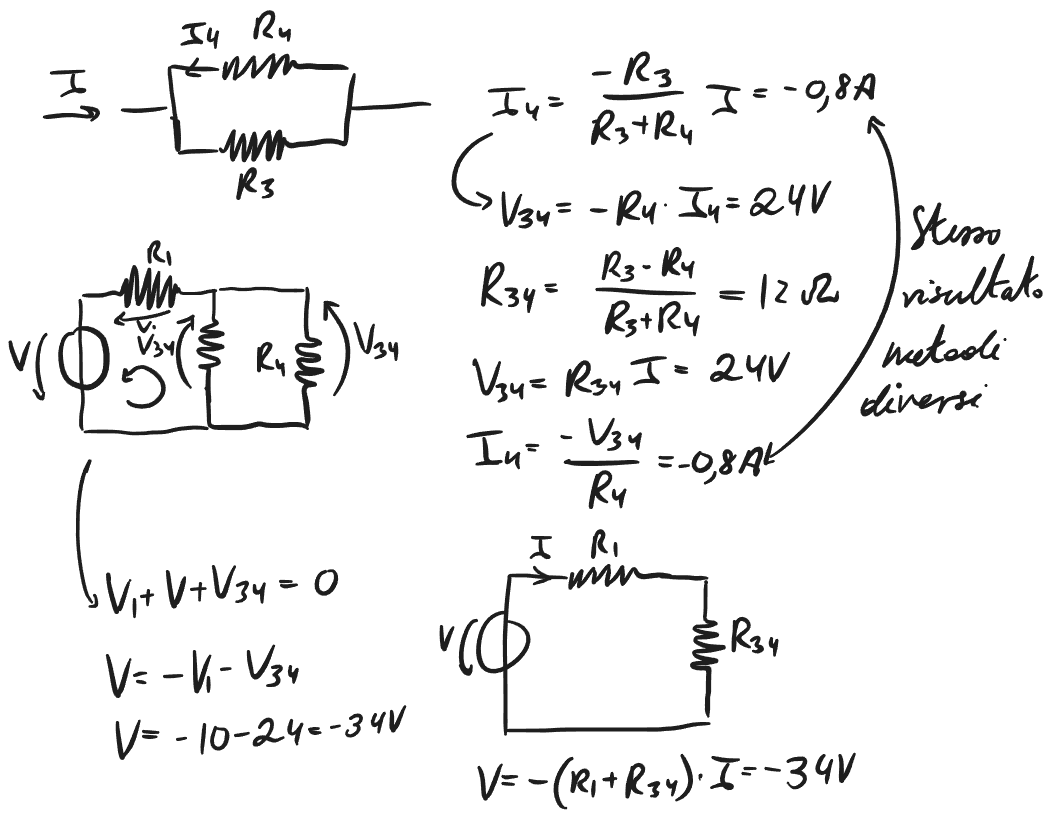 I
I4 R4
R3
I4 = -R3 / (R3+R4) I = -0,8A
V34 = -R4 · I4 = 24V
R34 = R3·R4 / (R3+R4) = 12 Ω
V34 = R34 I = 24V
I4 = -V34 / R4 = -0,8A
Stesso
risultato
metodi
diversi
R1
V1
V V34 R4 V34
V1 + V + V34 = 0
V = -V1 - V34
V = -10-24 = -34V
I R1
V R34
V = -(R1+R34)·I = -34V